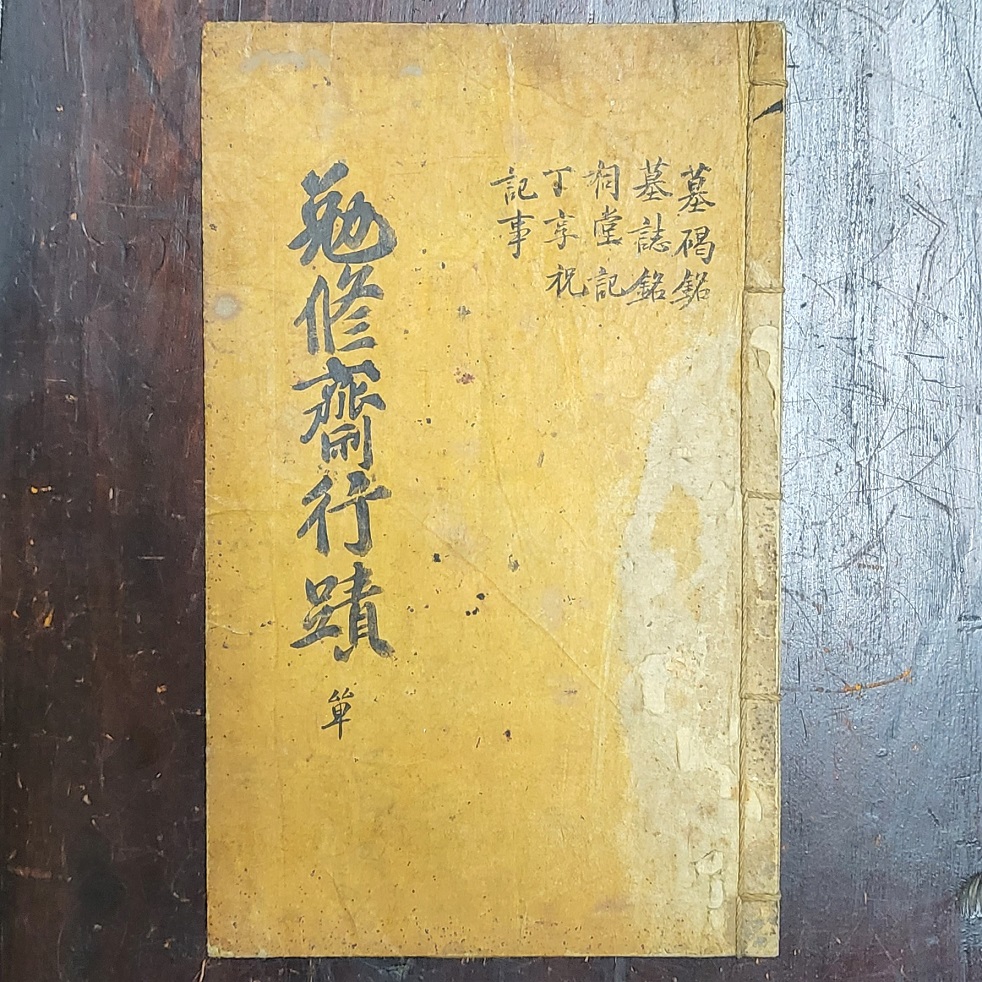 墓碣銘
墓誌銘
祠堂記
丁享祝
記事
勉修齋行蹟 單